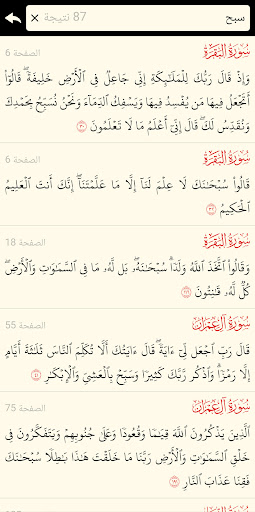 87 نتيجة × سبح
سُورَةُ البَقَرَةِ الصفحة 6
وَإِذْ قَالَ رَبُّكَ لِلْمَلَٰٓئِكَةِ إِنِّى جَاعِلٌ فِى ٱلْأَرْضِ خَلِيفَةً ۖ قَالُوٓا۟
أَتَجْعَلُ فِيهَا مَن يُفْسِدُ فِيهَا وَيَسْفِكُ ٱلدِّمَآءَ وَنَحْنُ نُسَبِّحُ بِحَمْدِكَ
وَنُقَدِّسُ لَكَ ۖ قَالَ إِنِّىٓ أَعْلَمُ مَا لَا تَعْلَمُونَ ٣٠
سُورَةُ البَقَرَةِ الصفحة 6
قَالُوا۟ سُبْحَٰنَكَ لَا عِلْمَ لَنَآ إِلَّا مَا عَلَّمْتَنَآ ۖ إِنَّكَ أَنتَ ٱلْعَلِيمُ
ٱلْحَكِيمُ ٣٢
سُورَةُ البَقَرَةِ الصفحة 18
وَقَالُوا۟ ٱتَّخَذَ ٱللَّهُ وَلَدًا ۗ سُبْحَٰنَهُۥ ۖ بَل لَّهُۥ مَا فِى ٱلسَّمَٰوَٰتِ وَٱلْأَرْضِ ۖ
كُلٌّ لَّهُۥ قَٰنِتُونَ ١١٦
سُورَةُ آلِ عِمۡرَانَ الصفحة 55
قَالَ رَبِّ ٱجْعَل لِّىٓ ءَايَةً ۖ قَالَ ءَايَتُكَ أَلَّا تُكَلِّمَ ٱلنَّاسَ ثَلَٰثَةَ أَيَّامٍ
إِلَّا رَمْزًا ۗ وَٱذْكُر رَّبَّكَ كَثِيرًا وَسَبِّحْ بِٱلْعَشِىِّ وَٱلْإِبْكَٰرِ ٤١
سُورَةُ آلِ عِمۡرَانَ الصفحة 75
ٱلَّذِينَ يَذْكُرُونَ ٱللَّهَ قِيَٰمًا وَقُعُودًا وَعَلَىٰ جُنُوبِهِمْ وَيَتَفَكَّرُونَ فِى
خَلْقِ ٱلسَّمَٰوَٰتِ وَٱلْأَرْضِ رَبَّنَا مَا خَلَقْتَ هَٰذَا بَٰطِلًا سُبْحَٰنَكَ
فَقِنَا عَذَابَ ٱلنَّارِ ١٩١